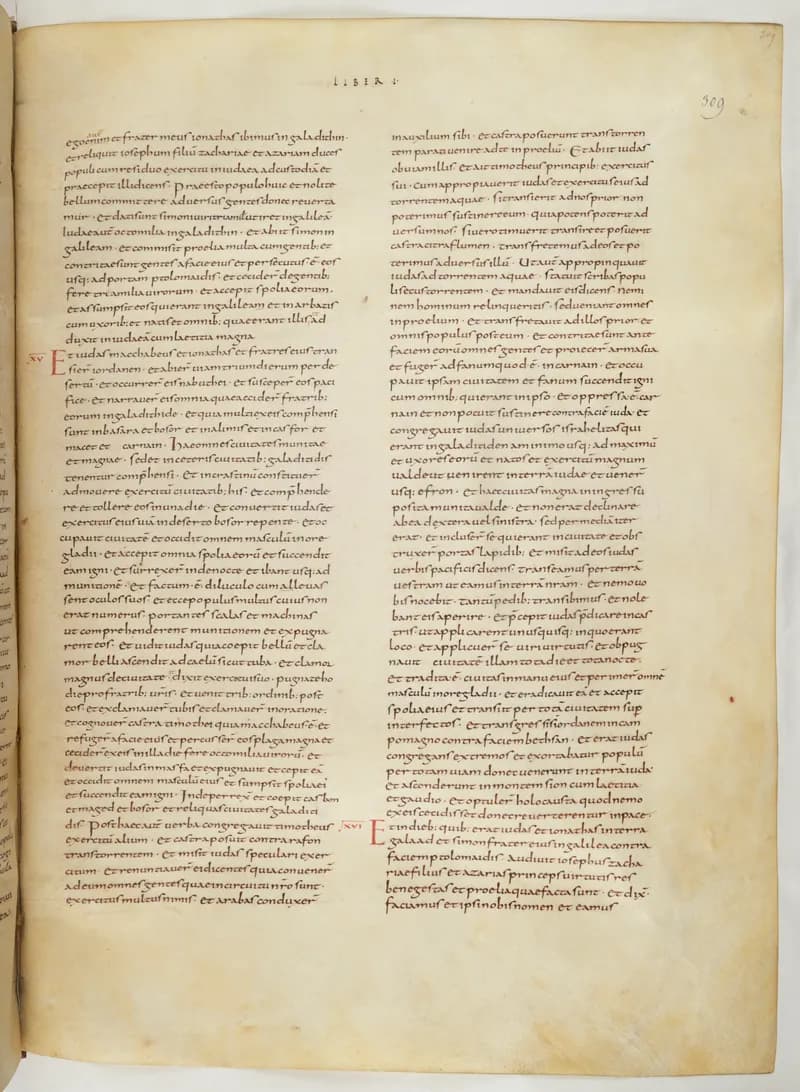 LIBER I
309
ego autem et frater meus ionathas ibimus in galadithin ·
et reliquit iosephum filiū zachariae et azariam duces
populi cum residuo exercitu in iudaea ad custodiā et
praecepit illis dicens · Praeestote populo huic et nolite
bellum committere adversus gentes donec reverta
mur · et dati sunt simoni viri tria milia ut iret in galileā
Iudae autē octo milia in galadithin · et abiit simon in
galileam · et commisit proelia multa cum gentib; et
contritae sunt gentes a facie eius et persecutus · ē · eos
usq; ad portam ptolomaidis · et cecider̄ de gentib;
fere tria milia virorum · et accepit spolia eorum ·
et assumpsit eos qui erant in galileam et in arbatis
cum uxorib; et natis et omnib; quae erant illis &ad
duxit in iudaeā cum laetitia magna
XV Et iudas macchabeus et ionathas et fratres eius tran
sier̄ iordanen · et abier̄ viam trium dierum per de
sertū · et occurrer̄ eis nabuthei · et susceper̄ eos paci
fice · et narraver̄ eis omnia quae accider̄ fratrib;
eorum in galadithide · et quia multi ex eis comp̄hensi
sunt in basara et bosor · et in alimis et in casfor · et
macet et carnain · Hae omnes civitates munitae
et magnae · sed et in ceteris civitatib; galaditidis
tenentur comp̄hensi · Et in crastinū constituer̄
admovere exercitū civitatib; his · et comp̄hende
re et tollere eos in una die · Et convertit iudas et
exercitus eius viā in deserto bosor repente · et oc
cupavit civitatē et occidit omnem masculū in ore
gladii · et accepit omnia spolia eorū et succendit
eam igni · et surrexer̄ inde nocte et ibant usq; ad
munitionē · et factum · ē · diluculo cum allevas
sent oculos suos · et ecce populus multus cuius non
erat numerus · portantes scalas et machinas
ut comprehenderent munitionem et expugna
rent eos · Et vidit iudas quia coepit bellū et cla
mor belli ascendit ad caelū sicut tuba · et clamor
magnus de civitate · dixit exercitui suo · pugnate ho
die pro fratrib; vr̄is · et venit trib; ordinib; post
eos · et exclamaver̄ tubis et clamaver̄ in oratione ·
et cognover̄ castra timothei quia macchabeus · ē · et
refuger̄ a facie eius et percusser̄ eos plaga magna et
cecider̄ ex eis in illa die fere octo milia virorū · et
devertit iudas in masfa et expugnavit et cepit eā
et occidit omnem masculū eius et sumpsit spolia ei
et succendit eam igni · Inde perrex̄ et coepit casbon
et maged et bosor et reliquas civitates galaditi
dis · Post haec autē verba congregavit timotheus
exercitū alium · et castra posuit contra rafon
trans torrentem · et misit iudas speculari exer
citum · et renuntiaver̄ ei dicentes quia convener̄
ad eum omnes gentes quae in circuitu nr̄o sunt ·
exercitus multus nimis · et arabas conduxer̄
in auxilium sibi · et castra posuerunt trans torren
tem parati venire ad te in proeliū · Et abiit iudas
obviam illis et ait timotheus principib; exercitus
sui · cum appropiaverit iudas et exercitus eius ad
torrentem aquae · si transierit ad nos prior non
poterimus sustinere eum · quia potens poterit ad
versum nos · si vero timuerit transire et posuerit
castra citra flumen · transfretemus ad eos et po
terimus adversus illū · Ut autē appropinquavit
iudas ad torrentem aquae · statuit scribas popu
li secus torrentem · et mandavit eis dicens · nemi
nem hominum relinqueritis · sed veniant omnes
in proelium · et transfretavit ad illos prior et
omnis populus post eum · et contritae sunt ante
faciem eorū omnes gentes et proiecer̄ arma sua
et fuger̄ ad fanum quod · ē · in carnain · et occu
pavit ipsam civitatem et fanum succendit igni
cum omnib; qui erant in ipso · et oppressa · ē · car
nain et non potuit sustinere contra faciē iuda · et
congregavit iudas universos israhelitas qui
erant in galaditide a minimo usq; ad maximū
et uxores eorū et natos et exercitū magnum
valde ut venirent in terrā iudae et vener̄
usq; efron · et haec civitas magna in ingressu
posita munita valde · et non erat declinare
ab ea dextera vel sinistra · sed per mediā iter
erat · et incluser̄ se qui erant in civitate et obs
truxer̄ portas lapidib; et misit ad eos iudas
verbis pacificis dicens · transeamus per terrā
vestram ut eamus in terrā nr̄am · et nemo vo
bis nocebit · tantū pedib; transibimus · et nole
bant eis aperire · et p̄cepit iudas p̄dicare in cas
tris · ut applicarent unusquisq; in quo erant
loco · et applicuer̄ se viri virtutis · et obpug
navit civitatē illam tota die et tota nocte ·
et tradita · ē · civitas in manu eius et perimer̄ omnē
masculū in ore gladii · et eradicavit eā et accepit
spolia eius et transiit per totā civitatem sup̄
interfectos · et transgressi sunt iordanem in cam
po magno contra faciem bethsan · et erat iudas
congregans extremos et exortabatur populū
per totam viam donec venerunt in terrā iuda
et ascenderunt in montem sion cum laetitia
et gaudio · et optuler̄ holocausta quod nemo
ex eis cecidisset donec reverterentur in pace ·
XVI Et in dieb; quib; erat iudas et ionathas in terra
galaad et simon frater eius in galilea contra
faciem ptolomaidis · Audivit iosephus zacha
riae filius et azarias princeps virtutis res
bene gestas et proelia quae facta sunt · et dix̄ ·
faciamus et ipsi nobis nomen et eamus